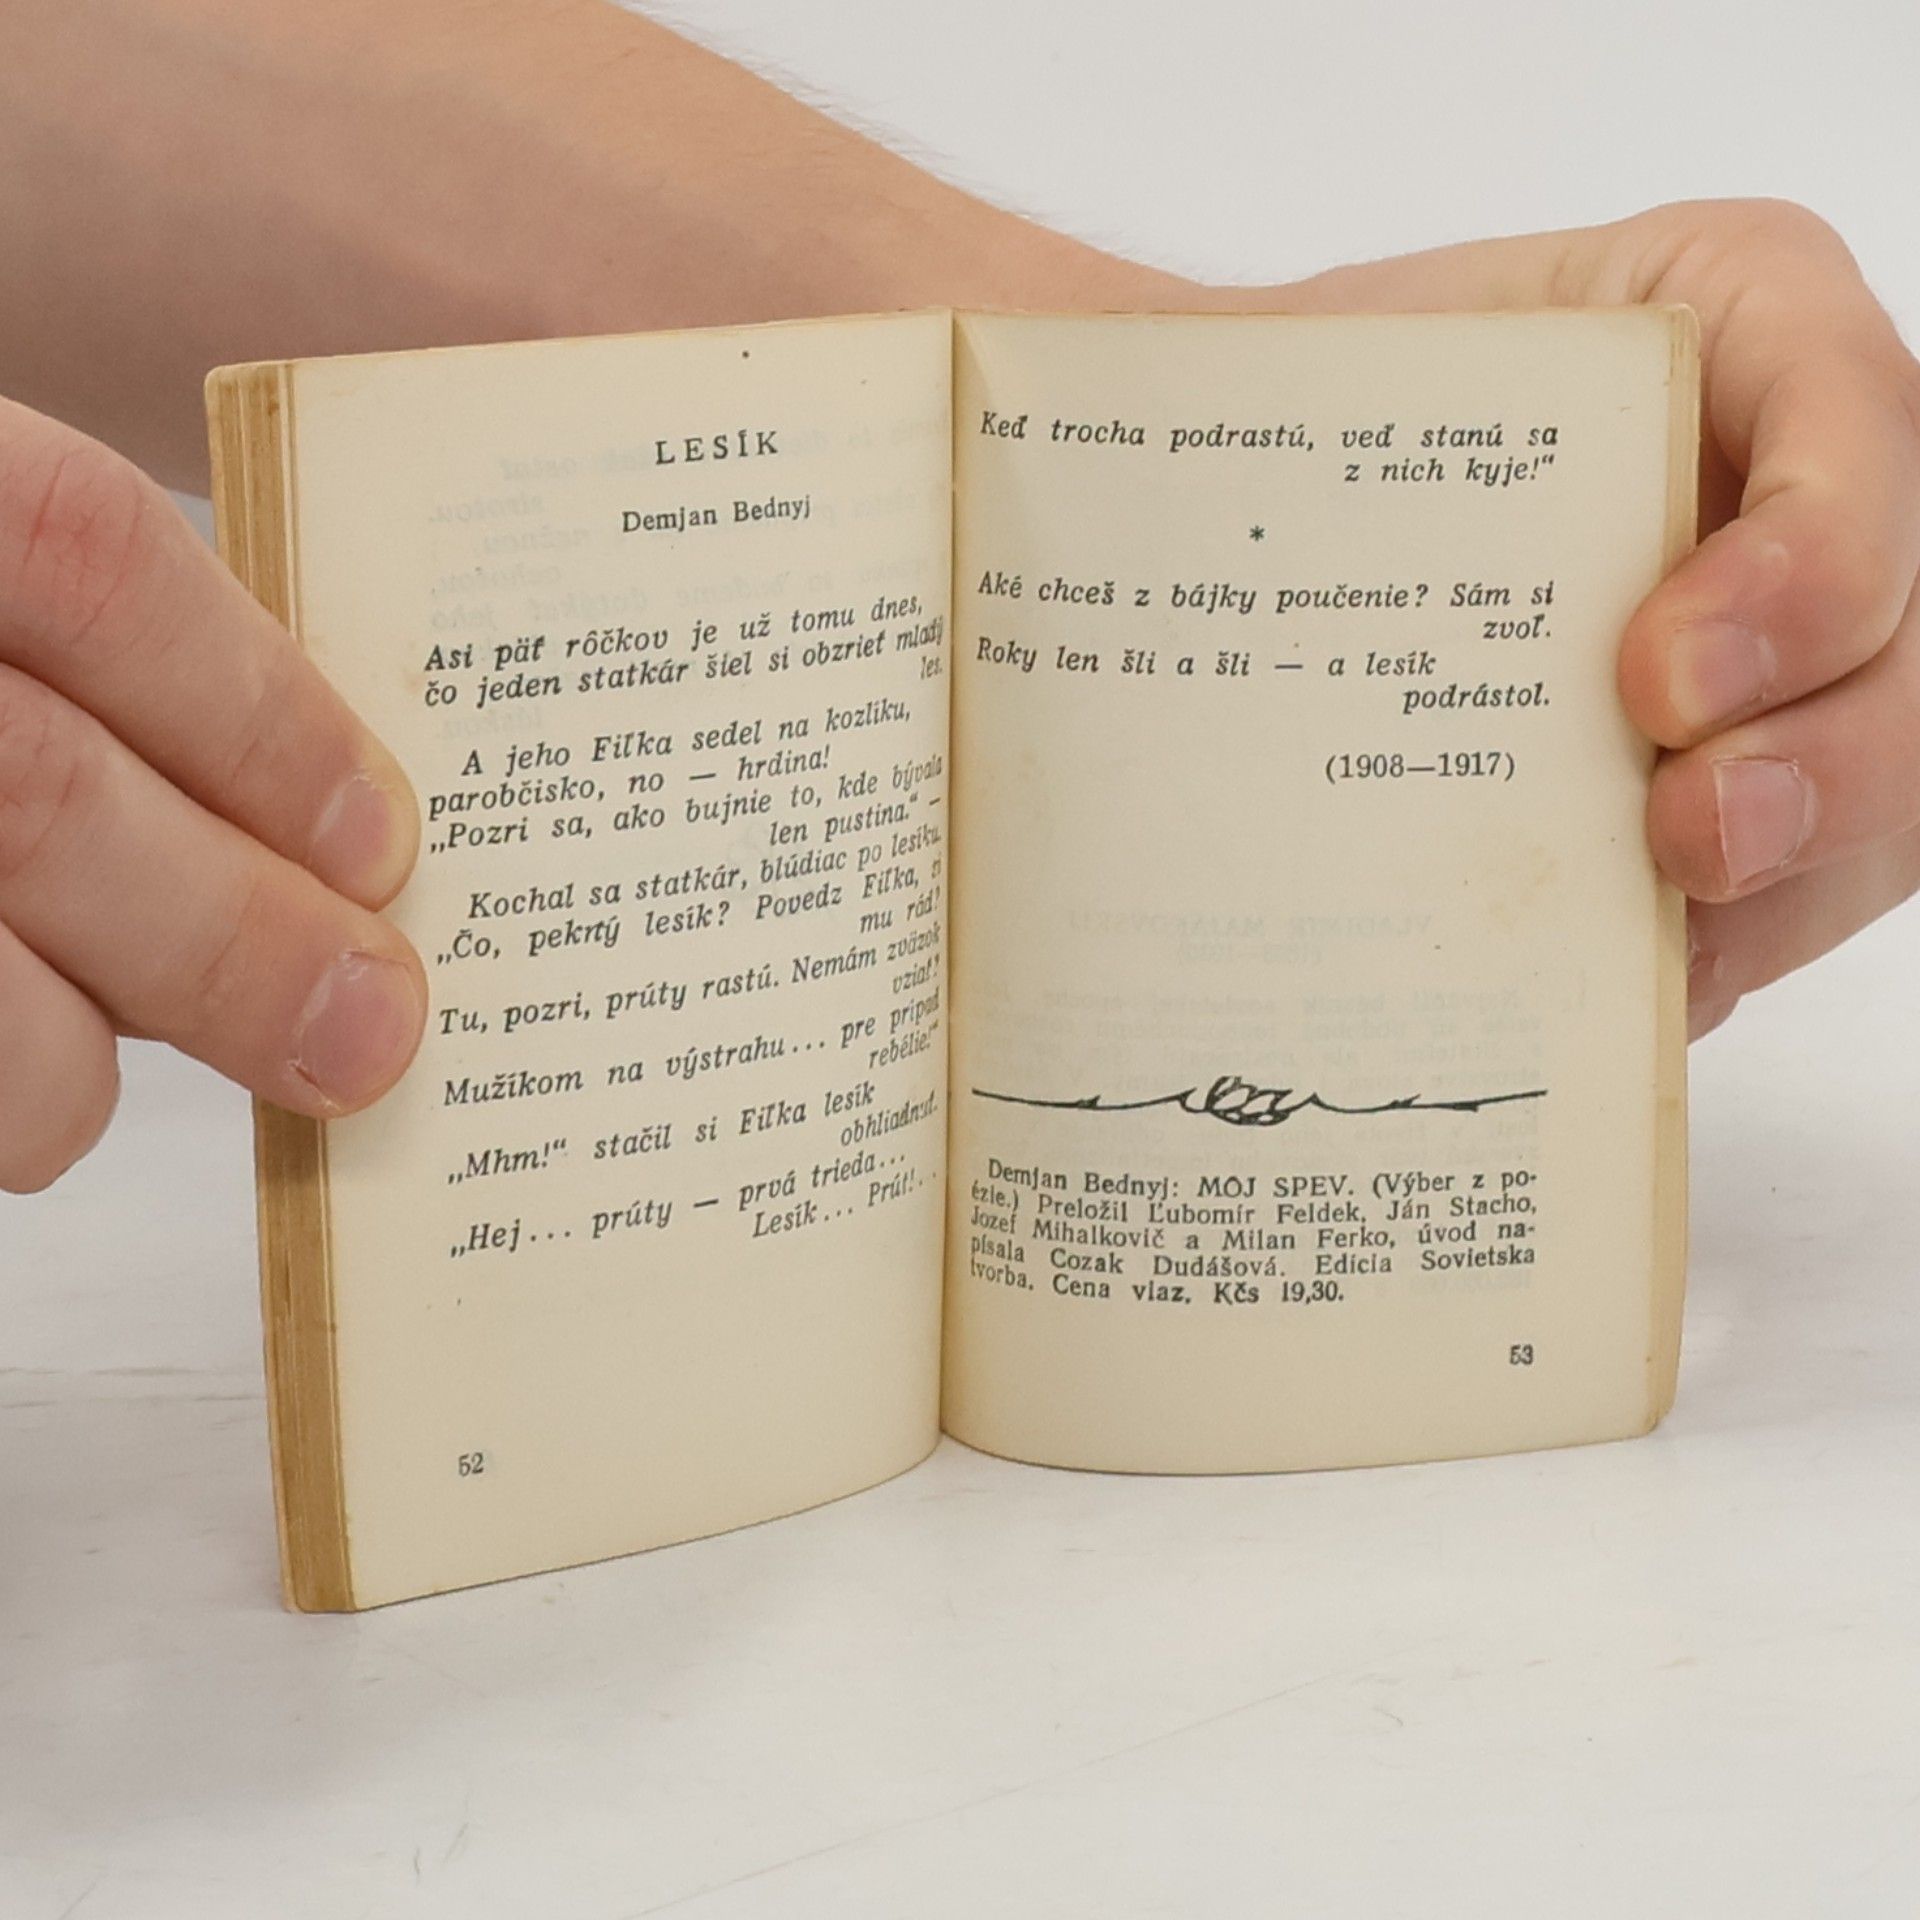 LESÍK
Demjan Bednyj
Asi päť rôčkov je už tomu dnes,
čo jeden statkár šiel si obzrieť mladý
les.
A jeho Fiľka sedel na kozlíku,
parobčisko, no — hrdina!
„Pozri sa, ako bujnie to, kde bývala
len pustina.“ —
Kochal sa statkár, blúdiac po lesíku.
„Čo, pekrtý lesík? Povedz Fiľka, ti
mu rád?
Tu, pozri, prúty rastú. Nemám zväzok
vziať?
Mužíkom na výstrahu... pre prípad
rebélie!“
„Mhm!“ stačil si Fiľka lesík
obhliadnuť.
„Hej... prúty — prvá trieda...
Lesík... Prút!..
52
Keď trocha podrastú, veď stanú sa
z nich kyje!“
*
Aké chceš z bájky poučenie? Sám si
zvoľ.
Roky len šli a šli — a lesík
podrástol.
(1908—1917)
Demjan Bednyj: MÔJ SPEV. (Výber z po-
ézie.) Preložil Ľubomír Feldek, Ján Stacho,
Jozef Mihalkovič a Milan Ferko, úvod na-
písala Cozak Dudášová. Edícia Sovietska
tvorba. Cena viaz. Kčs 19,30.
53